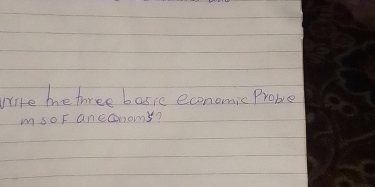 write the three basic economic Proble
ms of an economy?